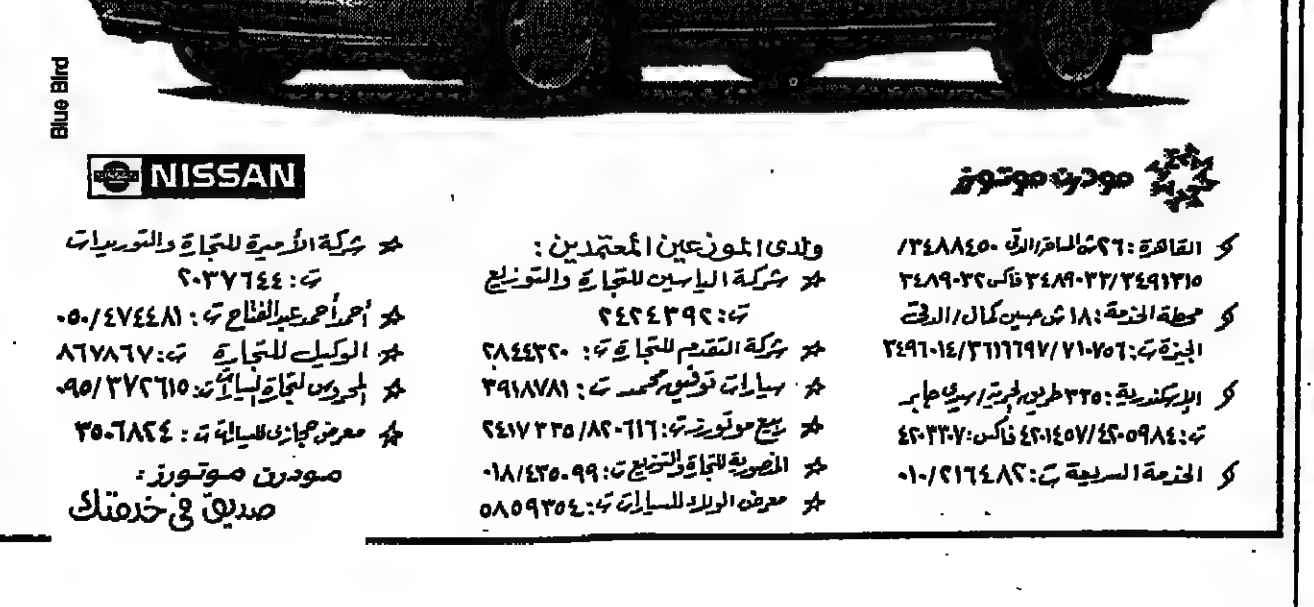 Blue Bird
NISSAN
مودرن موتورز
القاهرة : ٢٦ ش المساحة/الدقى ٣٤٨٨٤٥٠/
٣٤٩١٣١٥/٣٤٨٩٠٣٣ فاكس ٣٤٨٩٠٣٢
محطة الخدمة : ١٨ ش حسين كمال/الدقى
الجيزة ت : ٧١٠٧٥٦/٣٦١١٦٩٧/٣٤٩٦٠١٤
الإسكندرية : ٣٣٥ طريق الحرية/سيدى جابر
ت : ٤٢٠٥٩٨٤/٤٢٠١٤٥٧ فاكس : ٤٢٠٣٣٠٧
الخدمة السريعة ت : ٠١٠/٢١٦٤٨٢
ولدى الموزعين المعتمدين :
شركة الياسين للتجارة والتوزيع
ت : ٢٤٢٤٣٩٢
شركة التقدم للتجارة ت : ٢٨٤٤٣٢٠
سيارات توفيق محمد ت : ٣٩١٨٧٨١
ربيع موتورز ت : ٨٢٠٦١٦/٢٤١٧٣٣٥
المنصورية للتجارة والتوزيع ت : ٠١٨/٤٣٥٠٩٩
معرض الولاد للسيارات ت : ٥٨٥٩٣٥٤
شركة الأميرة للتجارة والتوريدات
ت : ٢٠٣٧٦٤٤
أحمد أحمد عبد الفتاح ت : ٠٥٠/٤٧٤٤٨١
الوكيل للتجارة ت : ٨٦٧٨٦٧
المحروس لتجارة السيارات ت : ٠٩٥/٣٧٢٦١٥
معرض حجازى للسيارات ت : ٣٥٠٦٨٢٤
مودرن موتورز :
صديق فى خدمتك